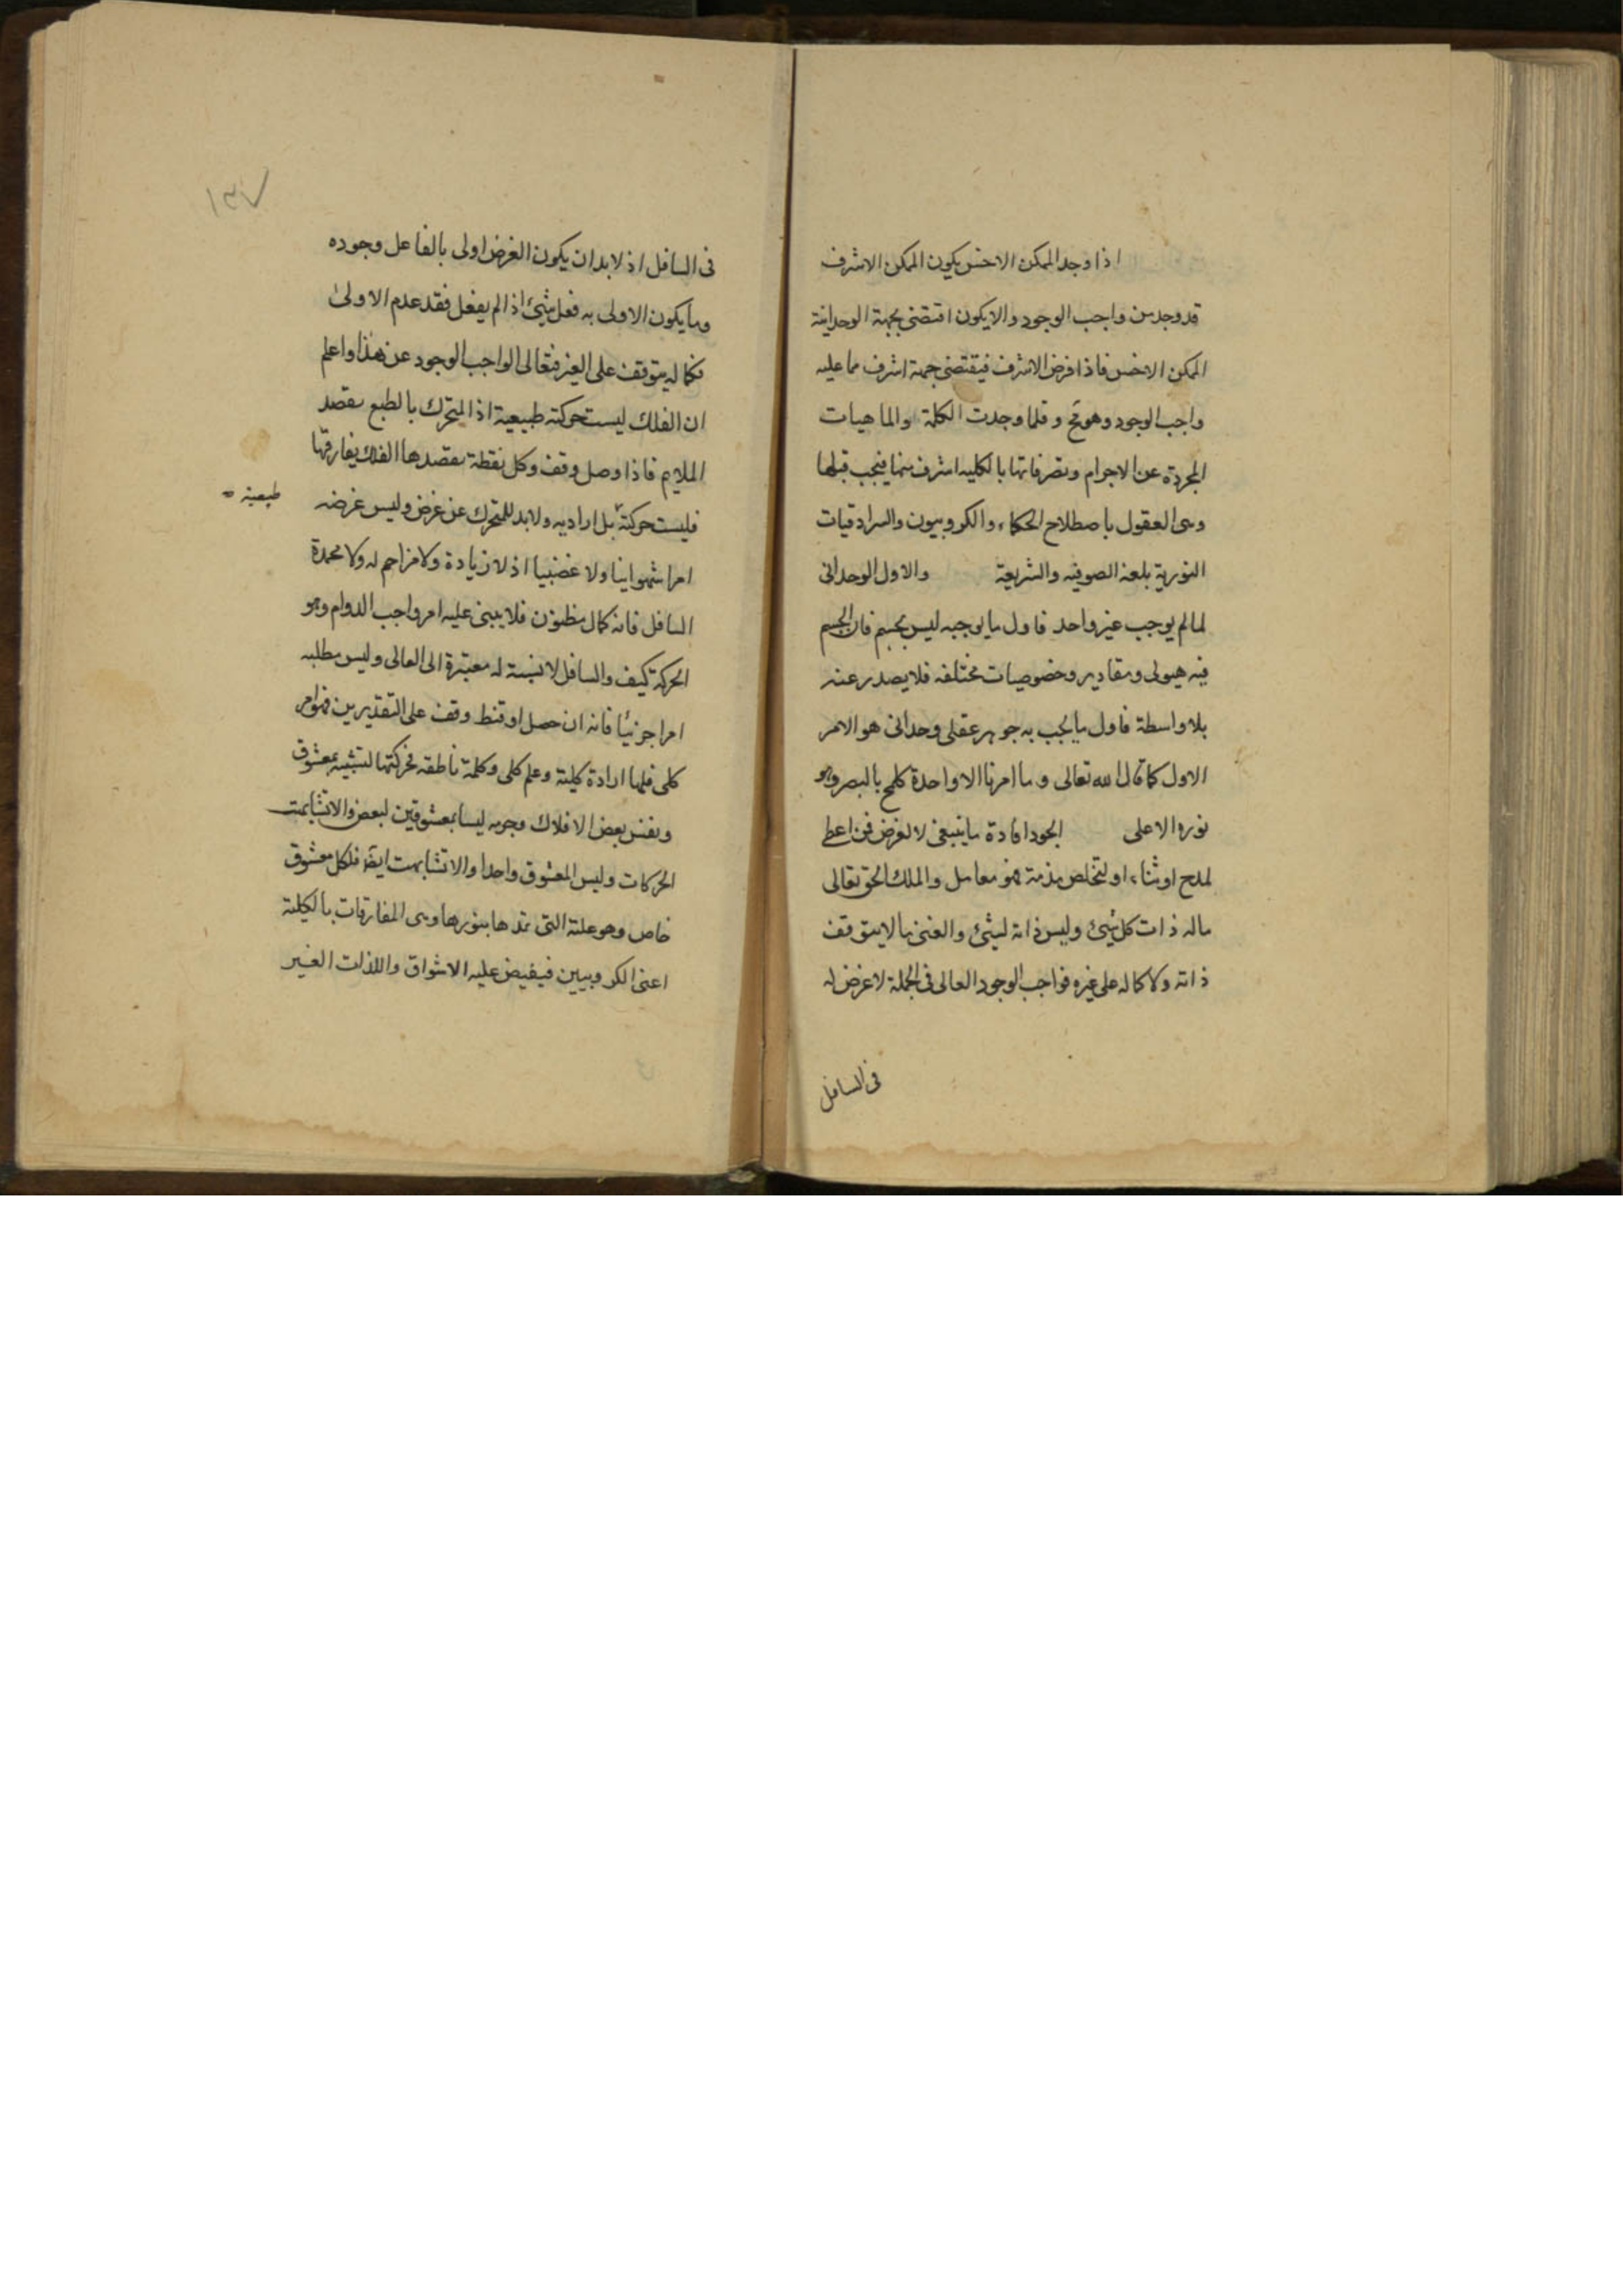 اذا وجد الممكن الاخس يكون الممكن الاشرف
قد وجد من واجب الوجود والا يكون اقتضى بجهة الوحدانية
الممكن الاخس فاذا فرض الاشرف فيقتضى جهة اشرف مما عليه
واجب الوجود وهو مح و قلما وجدت الكلمة والماهيات
المجردة عن الاجرام وتصرفاتها بالكلية اشرف منها فيجب قبلها
وهى العقول باصطلاح الحكماء والكروبيون والسرادقيات
النورية بلغة الصوفيه والشريعة والاول الوحدانى
لما لم يوجب غير واحد فاول ما يوجبه ليس بجسم فان الجسم
فيه هيولى ومقادير وخصوصيات مختلفه فلا يصدر عنه
بلا واسطة فاول ما يجب به جوهر عقلى وحدانى هو الامر
الاول كما قال الله تعالى وما امرنا الا واحدة كلمح بالبصر وهو
نوره الاعلى الجود افادة ما ينبغى لا لغرض فمن اعطى
لمدح او ثناء او لتخلص مذمة فهو معامل والملك الحق تعالى
ماله ذات كل شيئ وليس ذاته لشيئ والغنى ما لا يتوقف
ذاته ولا كماله على غيره فواجب الوجود العالى فى الجملة لا غرض له
فى السافل
١٣٧
فى السافل اذ لا بد ان يكون الغرض اولى بالفاعل وجوده
وما يكون الاولى به فعل شيئ اذا لم يفعل فقد عدم الاولى
فكماله يتوقف على الغير فتعالى الواجب الوجود عن هذا واعلم
ان الفلك ليست حركته طبيعية اذ المتحرك بالطبع يقصد
الملايم فاذا وصل وقف وكل نقطة يقصدها الفلك يفارقها
فليست حركته بل اراديه ولا بد للمتحرك عن غرض وليس غرضه
طبيعية
امرا شهوانيا ولا غضبيا اذ لا زيادة ولا مزاحم له ولا محمدة
السافل فانه كمال مظنون فلا يبنى عليه امر واجب الدوام وهو
الحركة كيف والسافل لا نسبة له معتبرة الى العالى وليس مطلبه
امرا جزئيا فانه ان حصل او قنط وقف على التقديرين فهو امر
كلى فلها ارادة كلية وعلم كلى وكلمة ناطقه فحركتها لتشبيه بمعشوق
ونفس بعض الافلاك وجرمه ليسا بمعشوقين لبعض والا تشابهت
الحركات وليس المعشوق واحدا والا تشابهت ايضا فلكل معشوق
خاص وهو علته التى تمدها بنورها وهى المفارقات بالكلية
اعنى الكروبيين فيفيض عليه الاشواق واللذات الغير